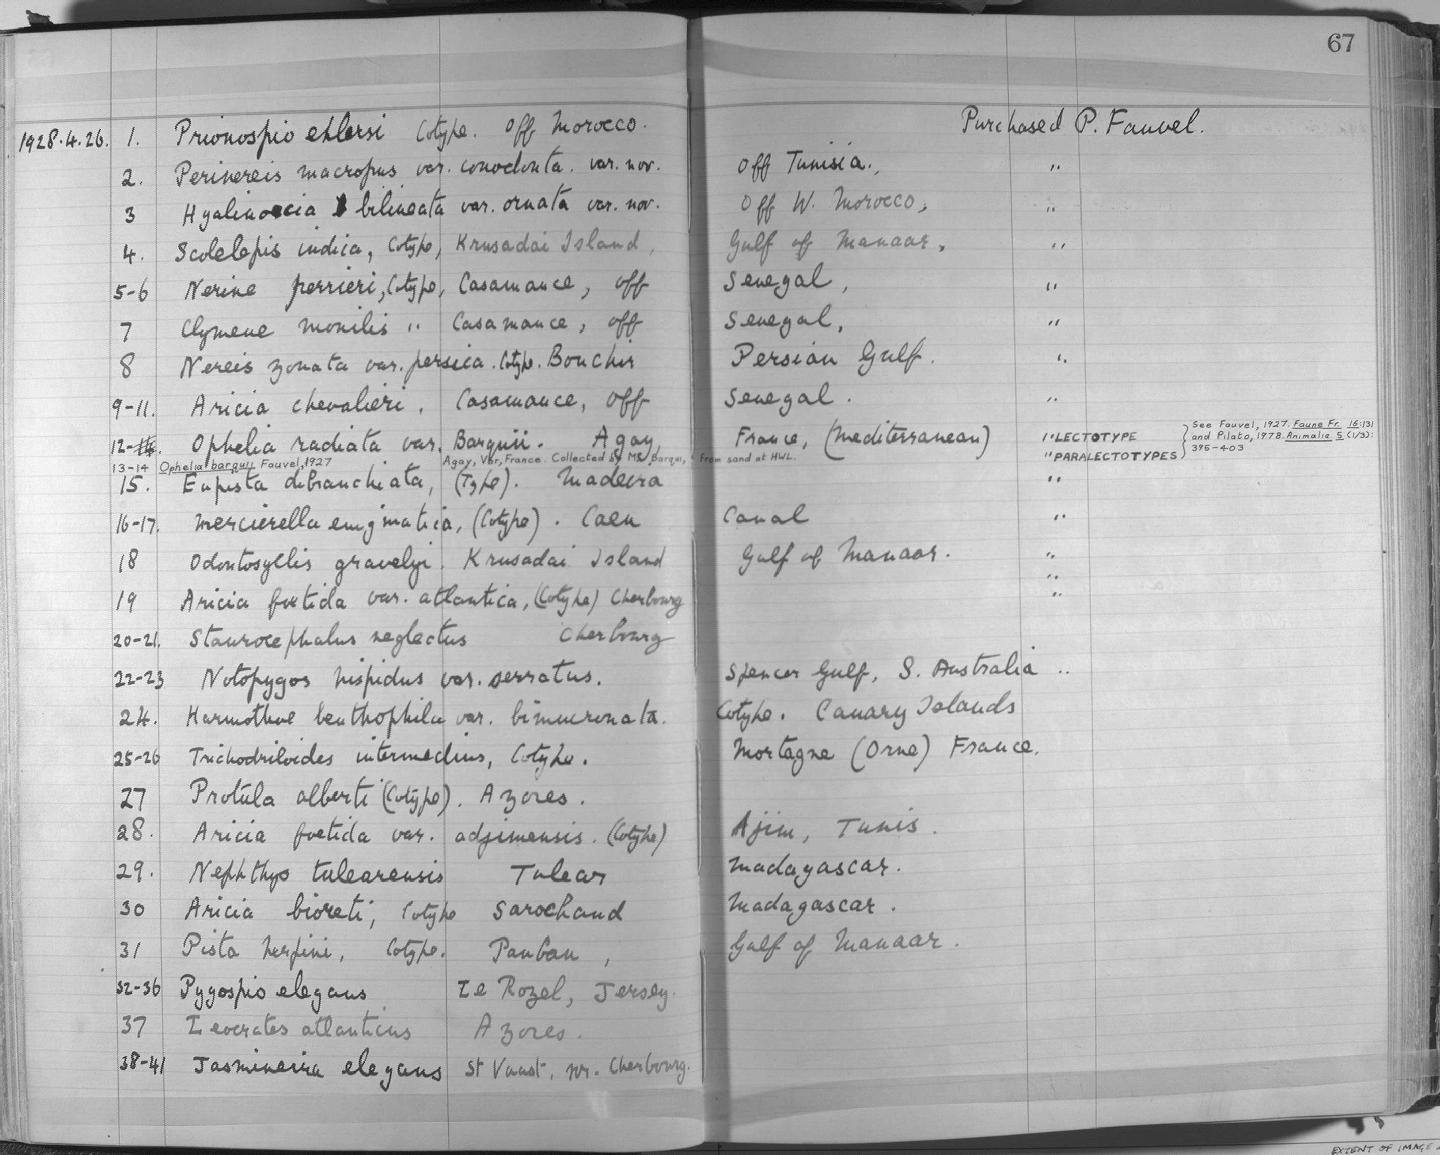 67
1928.4.26. 1. Prionospio ehlersi Cotype. Off Morocco. Purchased P. Fauvel.
2. Perinereis macropus var. conodonta. var. nov. Off Tunisia. "
3 Hyalinoecia bilineata var. ornata var. nov. Off W. Morocco, "
4. Scolelepis indica, Cotype, Krusadai Island, Gulf of Manaar, "
5-6 Nerine perrieri, Cotype, Casamance, off Senegal, "
7 Clymene monilis " Casamance, off Senegal, "
8 Nereis zonata var. persica. Cotype. Bouchir Persian Gulf. "
9-11. Aricia chevalieri, Casamance, off Senegal. "
12- Ophelia radiata var. Barquii. Agay, France, (Mediterranean) " LECTOTYPE See Fauvel, 1927. Faune Fr. 16:131
13-14 Ophelia barquii Fauvel, 1927 Agay, Var, France. Collected by M. Barqui, from sand at HWL. " PARALECTOTYPES and Pilato, 1978. Animalia 5 (1/3): 395-403
15. Eupista dibranchiata, (Type). Madeira "
16-17. Mercierella enigmatica, (Cotype). Caen Canal "
18 Odontosyllis gravelyi. Krusadai Island Gulf of Manaar. "
"
19 Aricia foetida var. atlantica, (Cotype) Cherbourg "
20-21. Staurocephalus neglectus Cherbourg
22-23 Notopygos hispidus var. serratus. Spencer Gulf, S. Australia "
24. Harmothoe benthophila var. bimucronata. Cotype. Canary Islands
25-26 Trichodriloides intermedius, Cotype. Mortagne (Orne) France.
27 Protula alberti (Cotype). Azores.
28. Aricia foetida var. adjimensis. (Cotype) Ajim, Tunis.
29. Nephthys tulearensis Tulear Madagascar.
30 Aricia bioreti, Cotype Sarochand Madagascar.
31 Pista herpini, Cotype. Panban, Gulf of Manaar.
32-36 Pygospio elegans Le Rozel, Jersey.
37 Leocrates atlanticus Azores.
38-41 Jasmineira elegans St Vaast, nr. Cherbourg.
EXTENT OF IMAGE